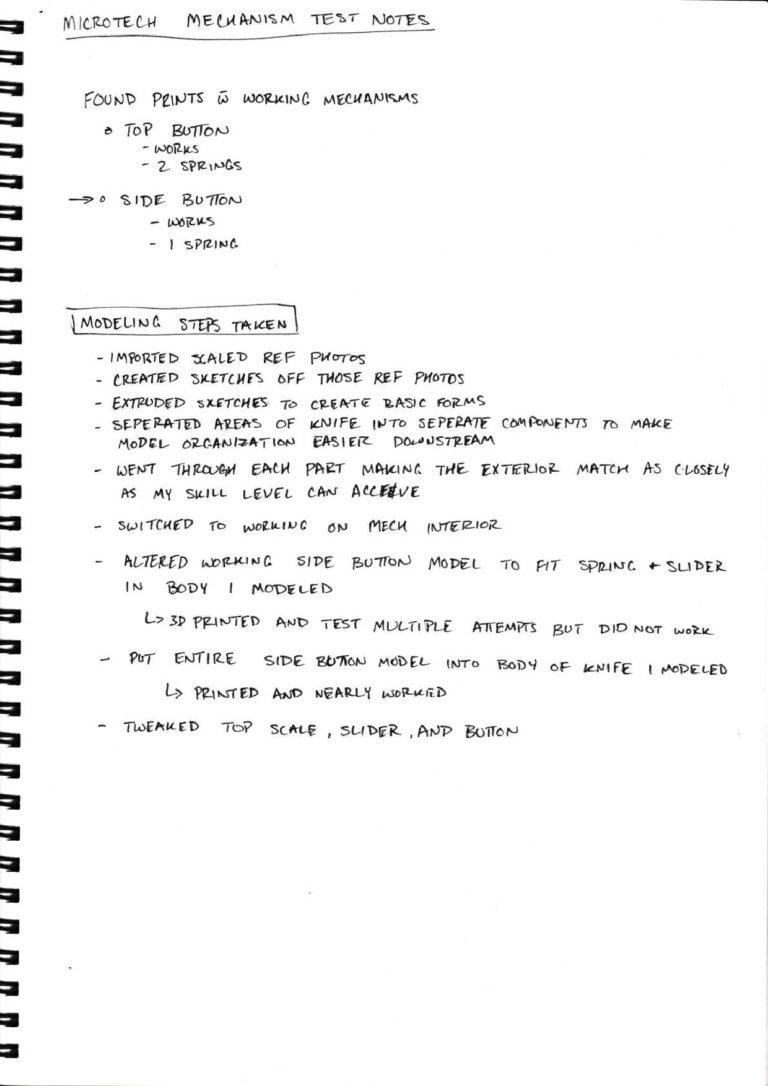 MICROTECH MECHANISM TEST NOTES
FOUND PRINTS w̄ WORKING MECHANISMS
o TOP BUTTON
- WORKS
- 2 SPRINGS
→ o SIDE BUTTON
- WORKS
- 1 SPRING
MODELING STEPS TAKEN
- IMPORTED SCALED REF PHOTOS
- CREATED SKETCHES OFF THOSE REF PHOTOS
- EXTRUDED SKETCHES TO CREATE BASIC FORMS
- SEPERATED AREAS OF KNIFE INTO SEPERATE COMPONENTS TO MAKE
MODEL ORGANIZATION EASIER DOWNSTREAM
- WENT THROUGH EACH PART MAKING THE EXTERIOR MATCH AS CLOSELY
AS MY SKILL LEVEL CAN
- SWITCHED TO WORKING ON MECH INTERIOR
- ALTERED WORKING SIDE BUTTON MODEL TO FIT SPRING + SLIDER
IN BODY I MODELED
↳ 3D PRINTED AND TEST MULTIPLE ATTEMPTS BUT DID NOT WORK
- PUT ENTIRE SIDE BUTTON MODEL INTO BODY OF KNIFE I MODELED
↳ PRINTED AND NEARLY WORKED
- TWEAKED TOP SCALE, SLIDER, AND BUTTON